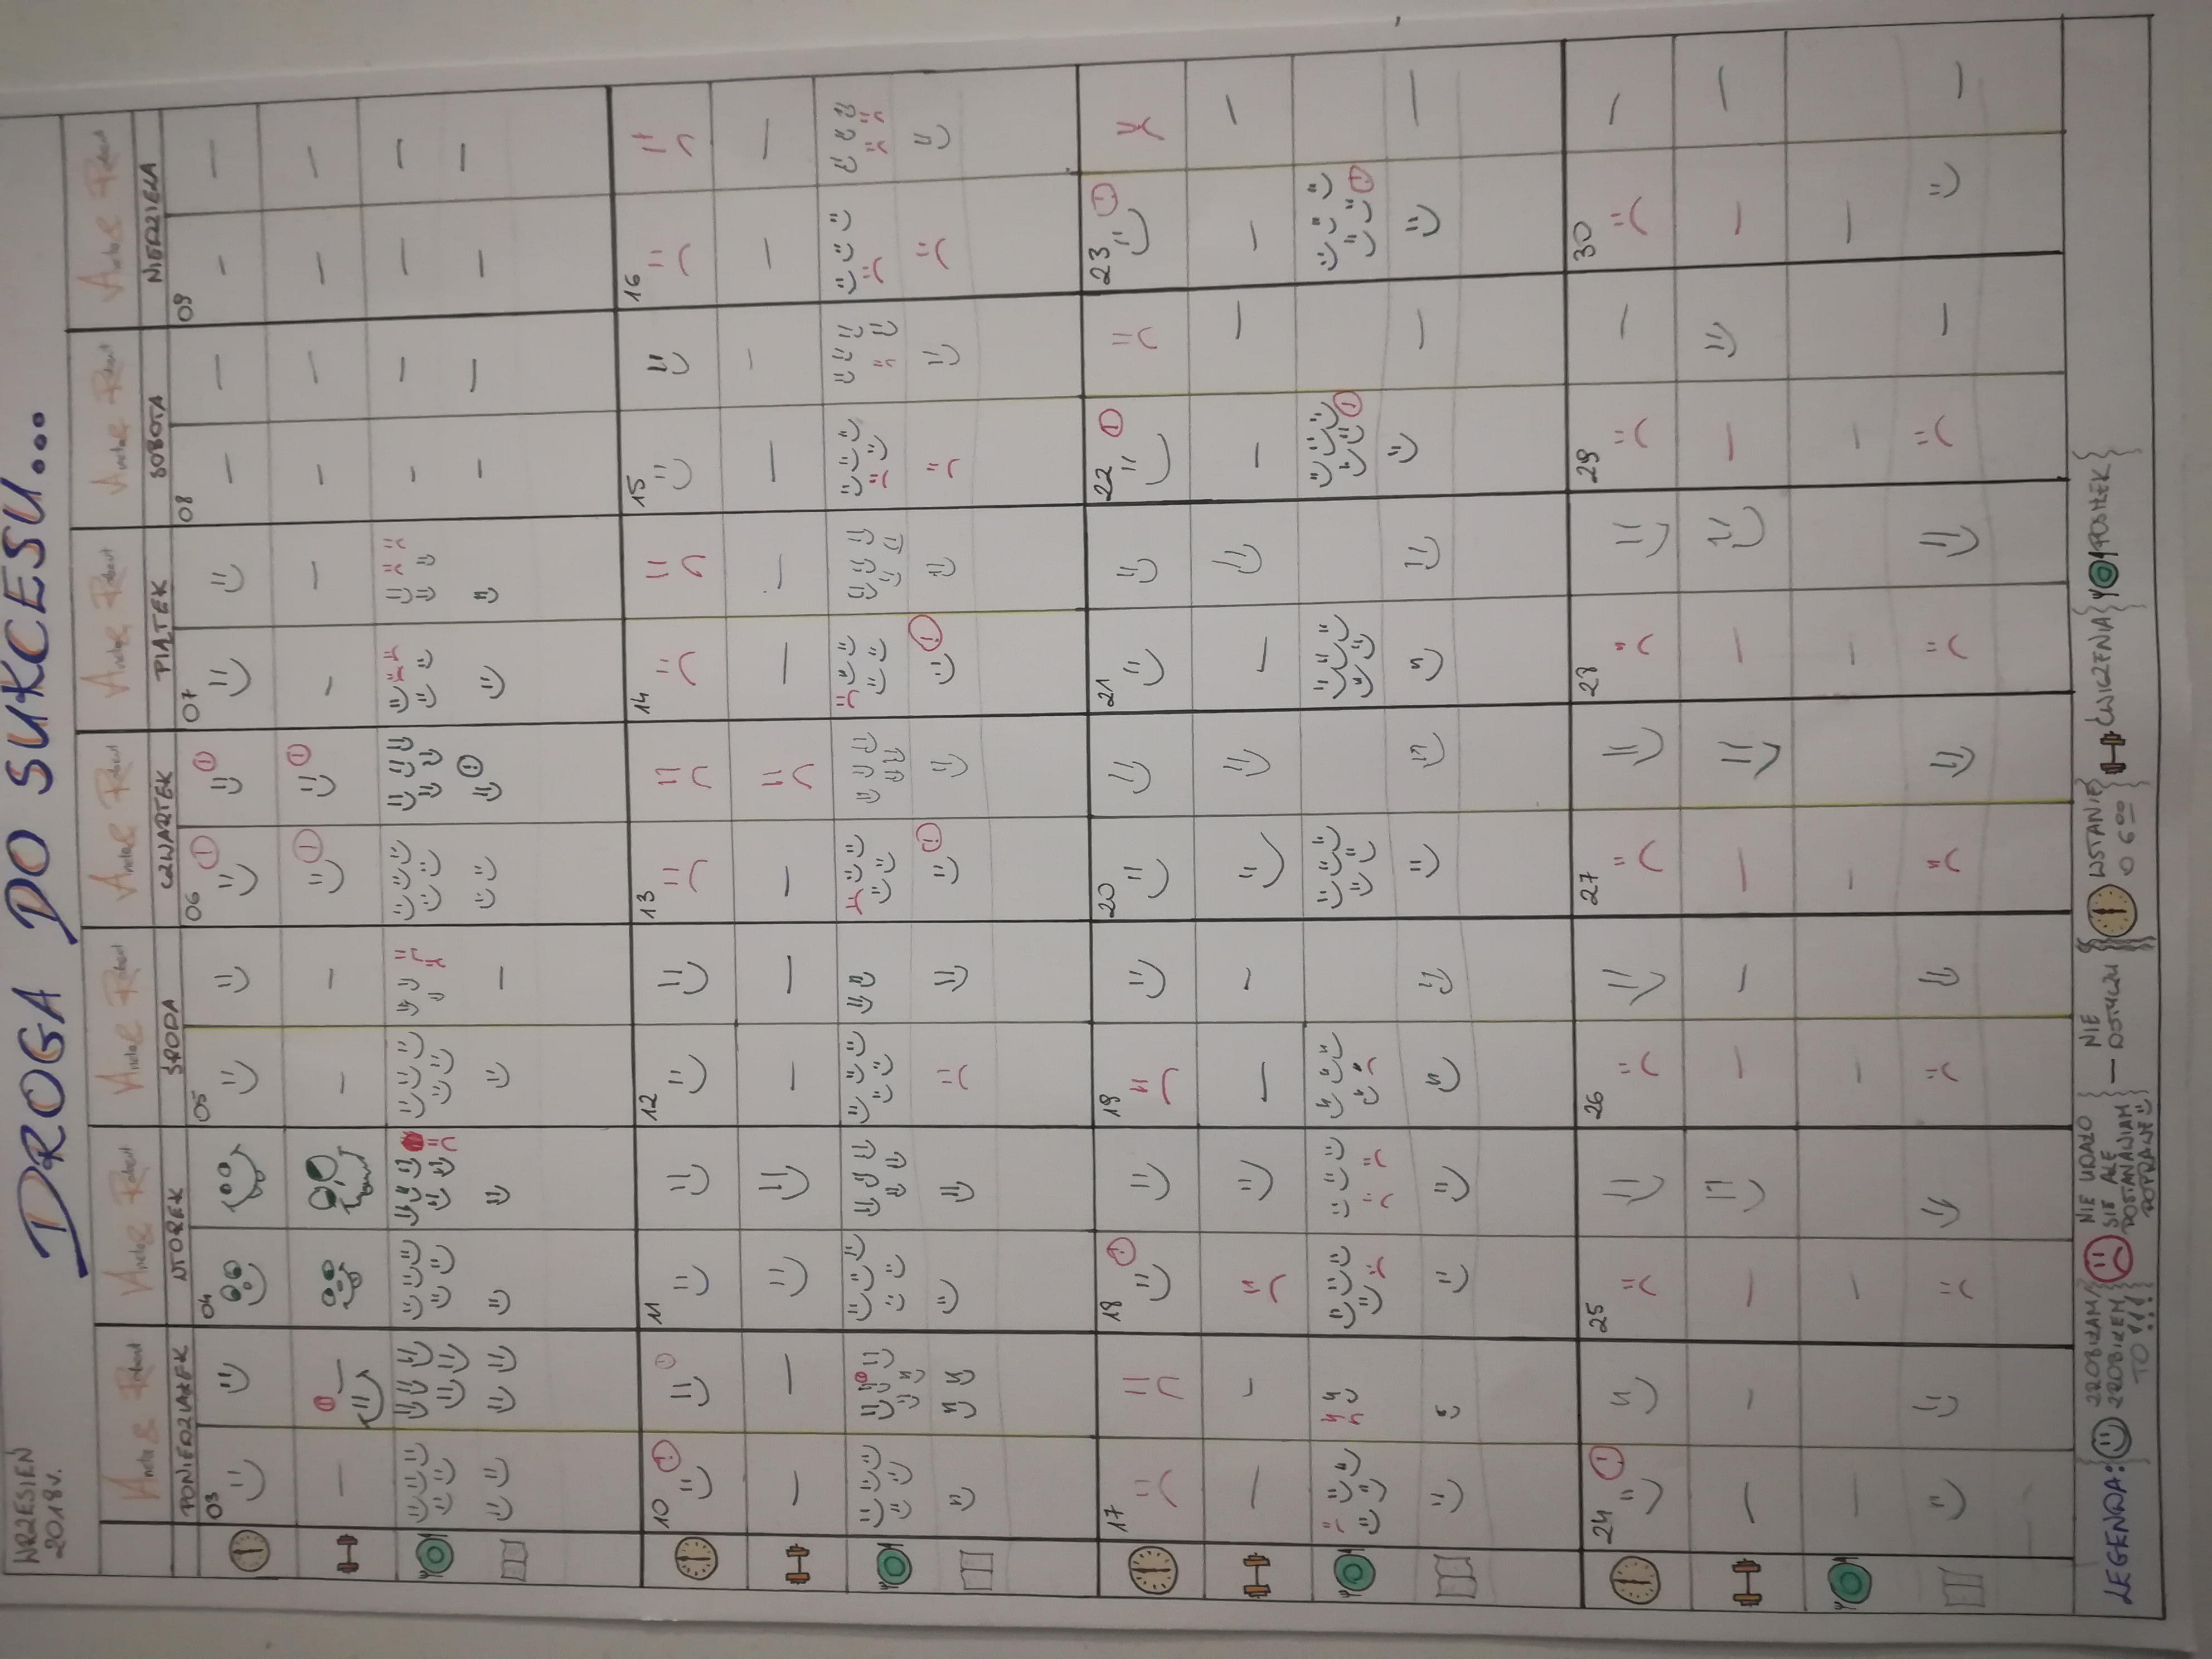 WRZESIEŃ
2018r.
DROGA DO SUKCESU...
Aneta & Robert Aneta & Robert Aneta & Robert Aneta & Robert Aneta & Robert Aneta & Robert Aneta & Robert
PONIEDZIAŁEK WTOREK ŚRODA CZWARTEK PIĄTEK SOBOTA NIEDZIELA
03 04 05 06 07 08 09
10 11 12 13 14 15 16
17 18 19 20 21 22 23
24 25 26 27 28 29 30
LEGENDA: ZROBIŁAM/ ZROBIŁEM TO!!! NIE UDAŁO SIĘ ALE POSTANAWIAM POPRAWĘ — NIE DOTYCZY WSTANIE O 6:00 ĆWICZENIA POSIŁEK